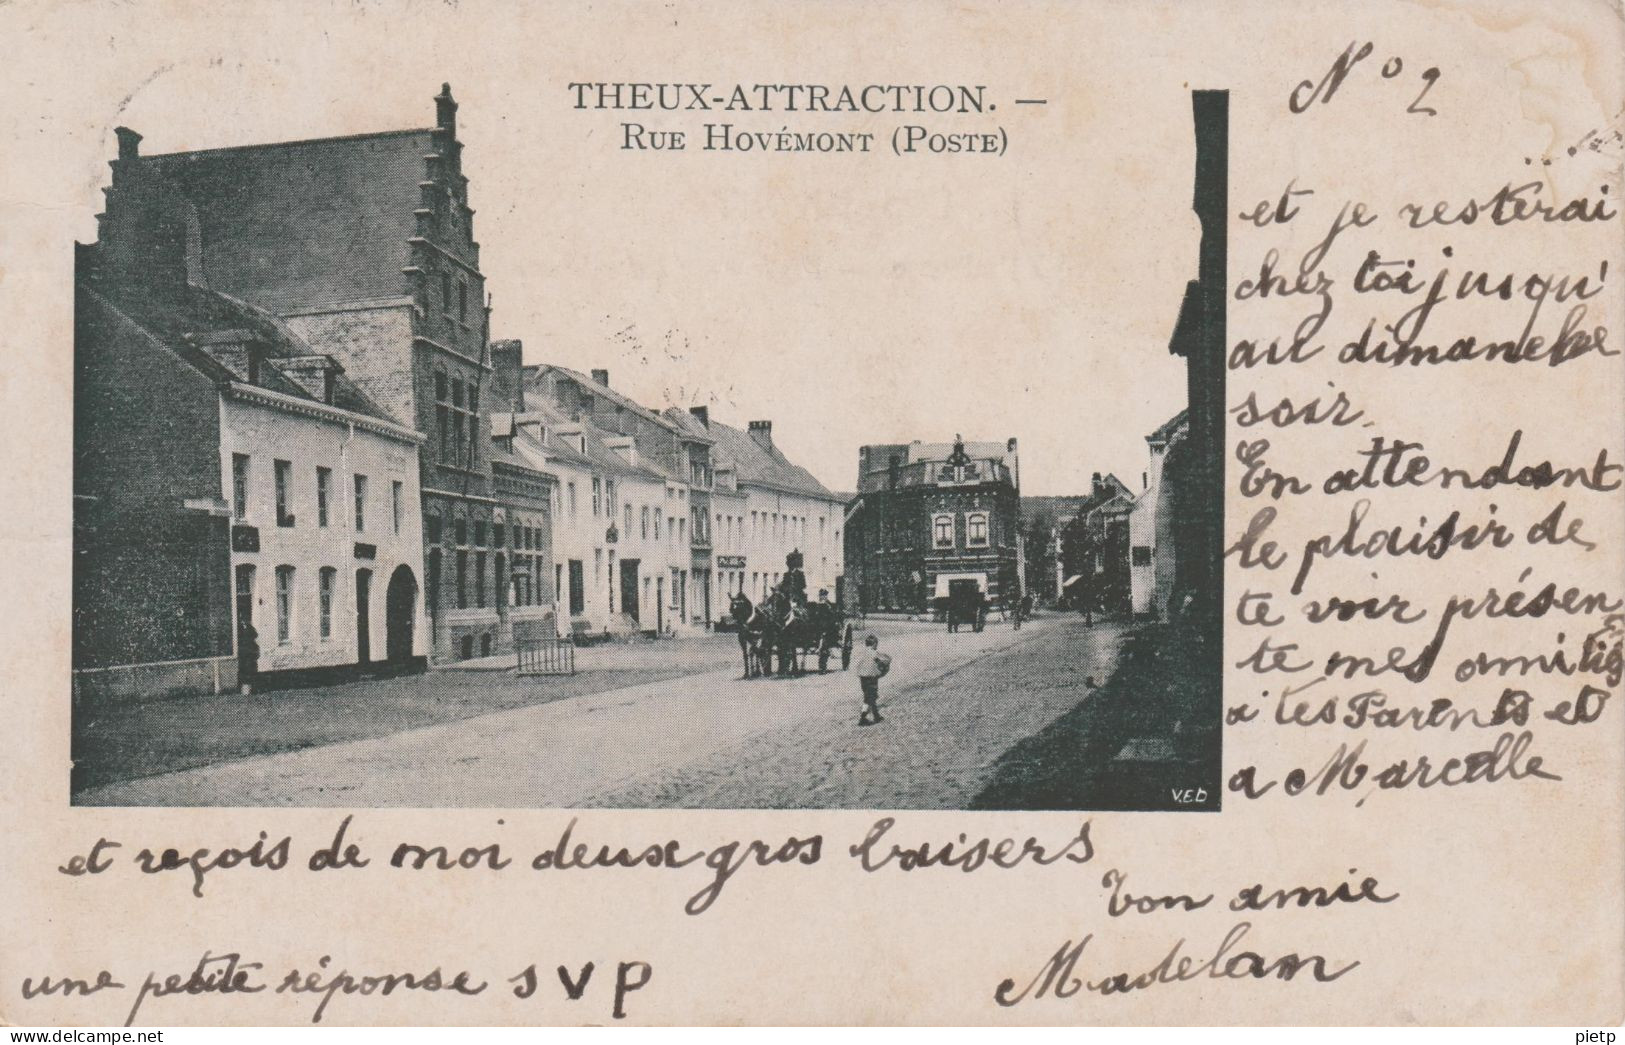 THEUX-ATTRACTION. —
RUE HOVÉMONT (POSTE)
N° 2
et je resterai
chez toi jusqu'
au dimanche
soir.
En attendant
le plaisir de
te voir présen
te mes amitiés
a tes Parents et
a Marcelle
et reçois de moi deux gros baisers
Ton amie
Madelam
une petite réponse SVP
V.E.D
www.delcampe.net
pietp